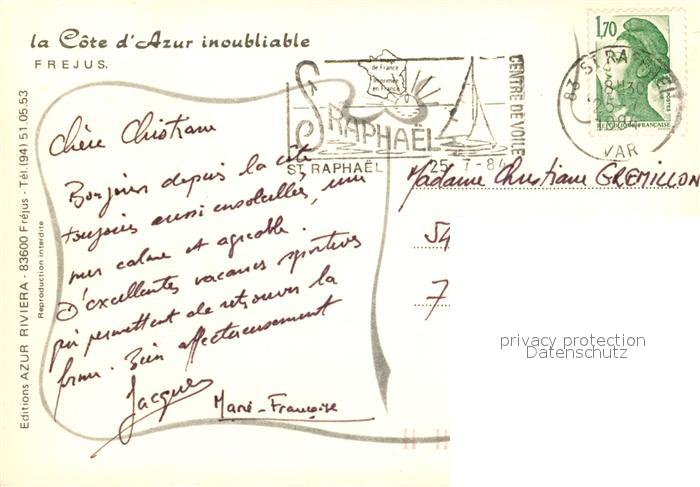 la Côte d'Azur inoubliable
FREJUS.
Image
de France
Imprimée
en France
ST RAPHAËL
ST RAPHAËL
25-7-84
CENTRE DE VOILE
1,70
83 ST RAPHAEL
18H30
25-7
1984
VAR
POSTES
REPUBLIQUE FRANÇAISE
Chère Christiane
Bonjour depuis la côte
toujours aussi ensoleillée, une
mer calme et agréable.
D'excellentes vacances sportives
qui permettent de retrouver la
forme. Bien affectueusement
Jacques
Marie-Françoise
Madame Christiane GREMILLON
54
7
privacy protection
Datenschutz
Editions AZUR RIVIERA - 83600 Fréjus - Tél. (94) 51.05.53
Reproduction interdite